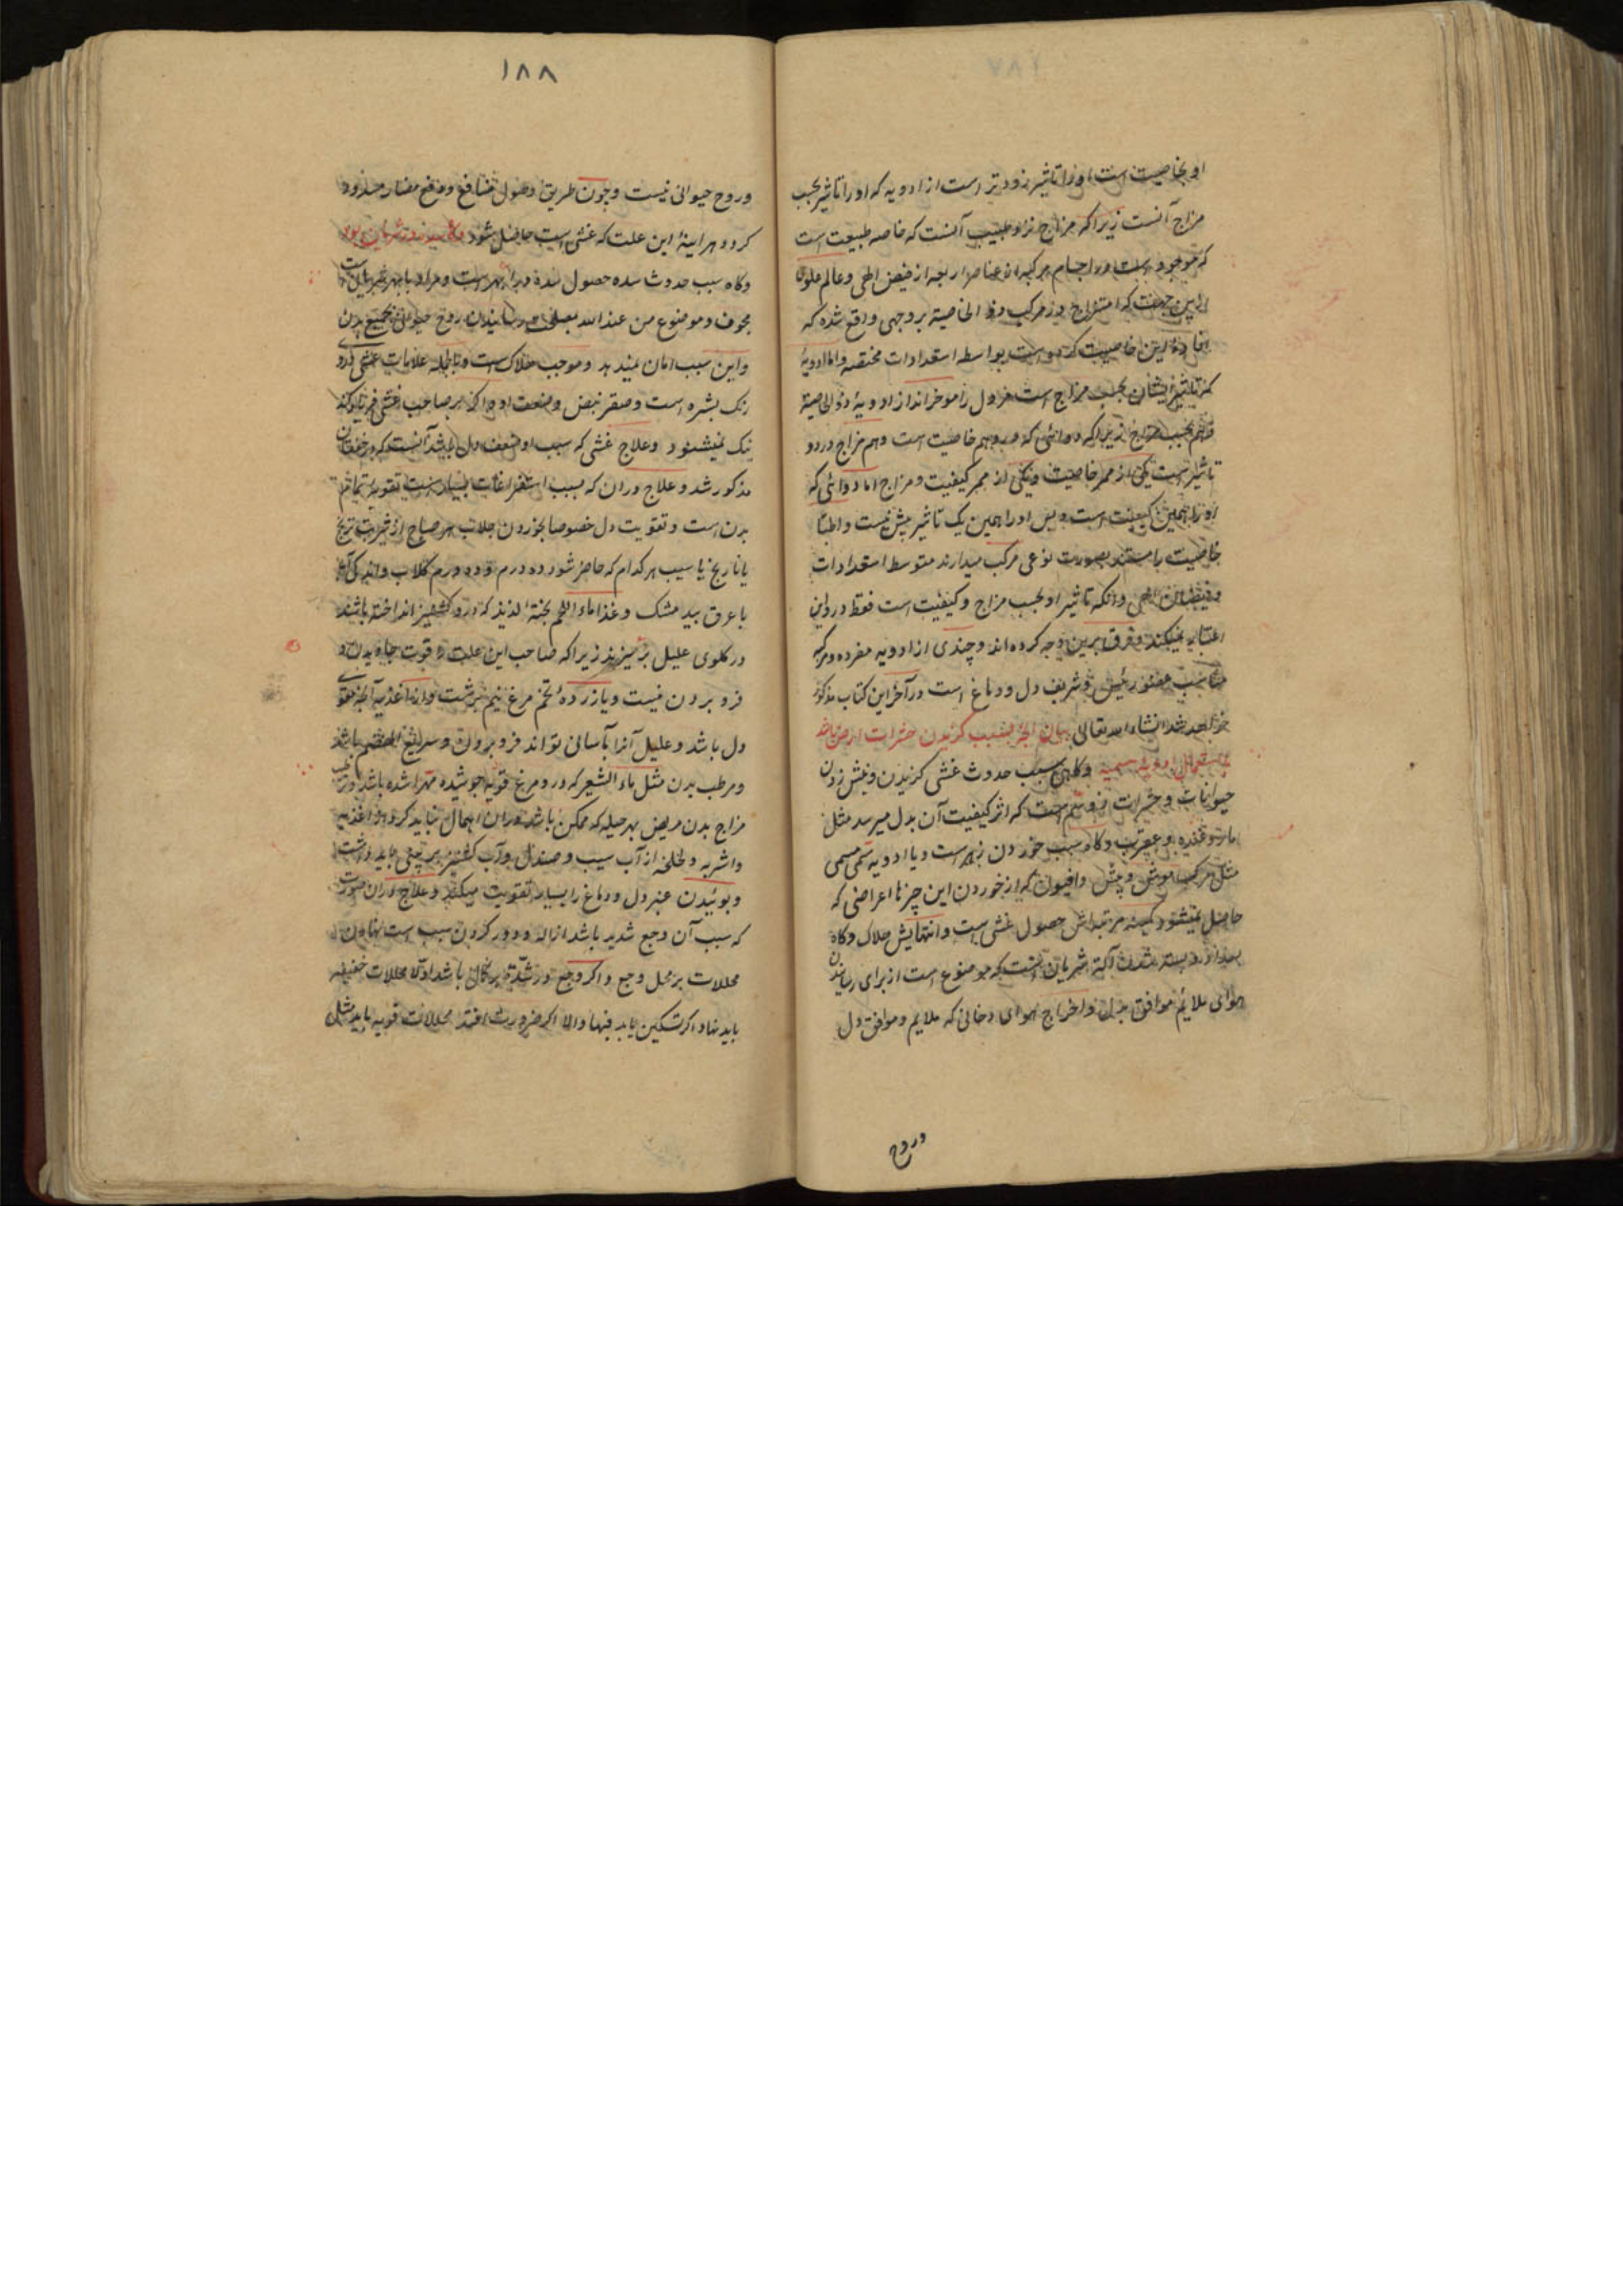 او بخاصیت است اورا تاثیر زودتر است از ادویه که اورا تاثیر بحسب
مزاج آنست زیراکه مزاج نزد طبیب آنست که خاصه طبیعت است
که موجود است در اجسام مرکبه از عناصر اربعه از فیض الهی و عالم علوی
ازین جهت که امتزاج در مرکب ذو الخاصیة بر وجهی واقع شده که
این خاصیت کرده است بواسطه استعدادات مختصه واما ادویهٔ
که تاثیر ایشان بحسب مزاج است در اول را موخر اند از ادویهٔ ذو الخاصیة
وهم بحسب مزاج زیراکه دوائی که درو هم خاصیت است وهم مزاج درو دو
تاثیر است یکی از ممر خاصیت ویکی از ممر کیفیت و مزاج اما دوائی که
اورا همین کیفیت است و بس اورا همین یک تاثیر بیش نیست واطبا
خاصیت را مستند بصورت نوعی مرکب میدارند متوسط استعدادات
وفیضان الهی وانکه تاثیر او بحسب مزاج و کیفیت است فقط در واین
اعتبار میکند وفرق برین وجه کرده اند وچندی از ادویه مفرده ومرکبه
مناسب عضو رئیس وشریف دل ودماغ است در آخر این کتاب مذکور
خواهد شد انشاء الله تعالی بیان آنچه بسبب گزیدن حشرات ارض باشد
وکاهی سبب حدوث غشی کزیدن ونیش زدن
حیوانات وحشرات ذو سم است که اثر کیفیت آن بدل میرسد مثل
مار وغنده و عقرب وکاه سبب خوردن زهر است ویا ادویه سمی مسمی
مثل مرکب موش وبیش وافیون که از خوردن این چیزها اعراضی که
حاصل میشود کمینه مرتبه اش حصول غشی است وانتهایش هلاک وکاه
بسته شدن آلة شریان است که موضوع است از برای رسانیدن
هوای ملائم موافق بدل واخراج هوای دخانی که ملایم وموافق دل
وروح
۱۸۸
وروح حیوانی نیست وچون طریق وصول منافع ودفع مضار مسدود
کردد هراینهٔ این علت که غشی است حاصل شود
وکاه سبب حدوث سده حصول سده در ابهر است و مراد بابهر شریان است
مجوف وموضوع من عند الله تعالی در رسانیدن روح حیوانی بجمیع بدن
واین سبب امان نمیدهد وموجب هلاک است وبالجمله علامات غشی زردی
رنک بشره است وصغر نبض وضعف او واکر بر صاحب غشی فریاد کند
نیک نمیشنود وعلاج غشی که سبب او ضعف دل باشد آنست که در خفقان
مذکور شد وعلاج دران که بسبب استفراغات بسیار است تقویهٔ تمام
بدن است وتقویت دل خصوصا بخوردن جلاب هر صباح از شربت ترنج
یا نارنج یا سیب هر کدام که حاضر شود ده درم وده درم کلاب واندکی آب
با عرق بید مشک وغذا ماء اللحم پختهٔ لذیذ که درو کشنیز انداخته باشند
در کلوی علیل بریزند زیراکه صاحب این علت را قوت جاویدن و
فرو بردن نیست ویا زردهٔ تخم مرغ نیم برشت واز اغذیه آنچه مقوی
دل باشد وعلیل آنرا بآسانی تواند فرو بردن وسریع الهضم باشد
ومرطب بدن مثل ماء الشعیر که درو مرغ فربه جوشیده مهرا شده باشد وترطیب
مزاج بدن مریض بهر حیله که ممکن باشد دران اهمال نباید کرد واز اغذیه
واشربه ولخلخه از آب سیب وصندل وآب کشنیز بر بینی باید داشت
وبوئیدن عنبر دل ودماغ را بسیار تقویت میکند وعلاج دران صورت
که سبب آن وجع شدید باشد ازاله ودور کردن سبب است نهادن
محللات بر محل وجع واکر وجع در شدت بر کمال باشد اولا محللات خفیفه
باید نهاد اکر تسکین یابد فبها والا اکر ضرورت افتد محللات قویه باید مثل